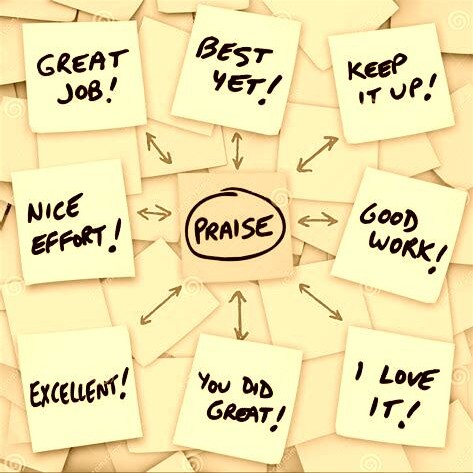 GREAT
JOB!
BEST
YET!
KEEP
IT UP!
NICE
EFFORT!
PRAISE
GOOD
WORK!
EXCELLENT!
YOU DID
GREAT!
I LOVE
IT!